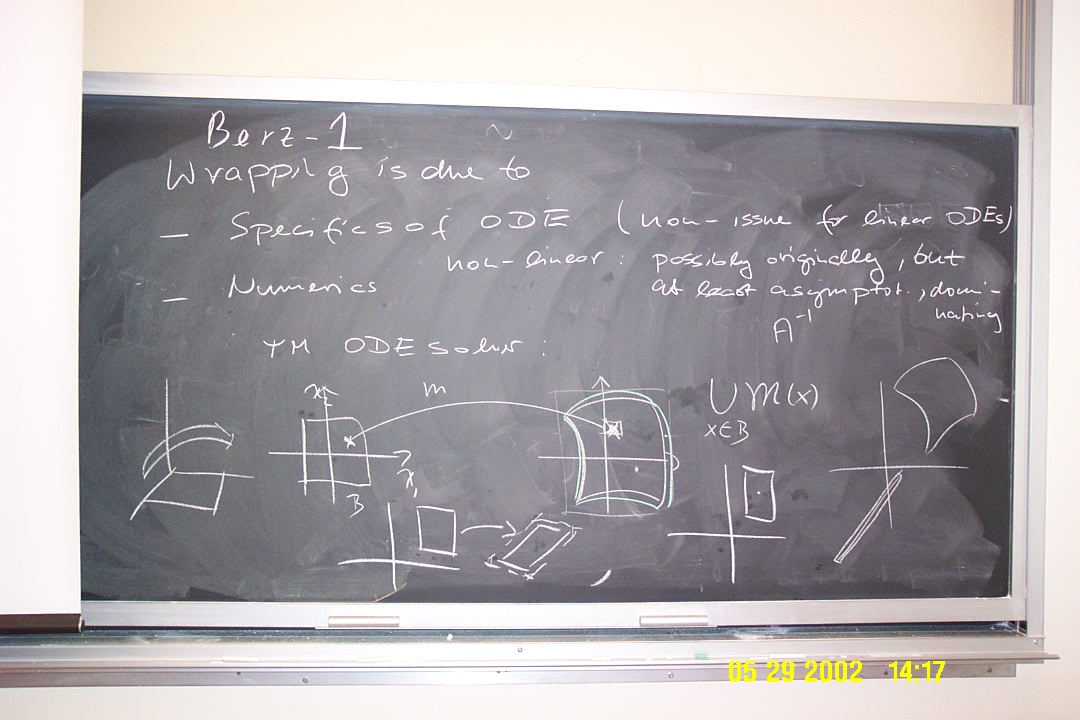 Berz-1
~
Wrappilg is due to
— Specifics of ODE (non-issue for linear ODEs)
non-linear: possibly originally, but
— Numerics
at least asymptot., domi-
nating
A⁻¹
TM ODE solver:
x₂
m
∪ M(x)
x∈B
x₁
B
05 29 2002 14:17